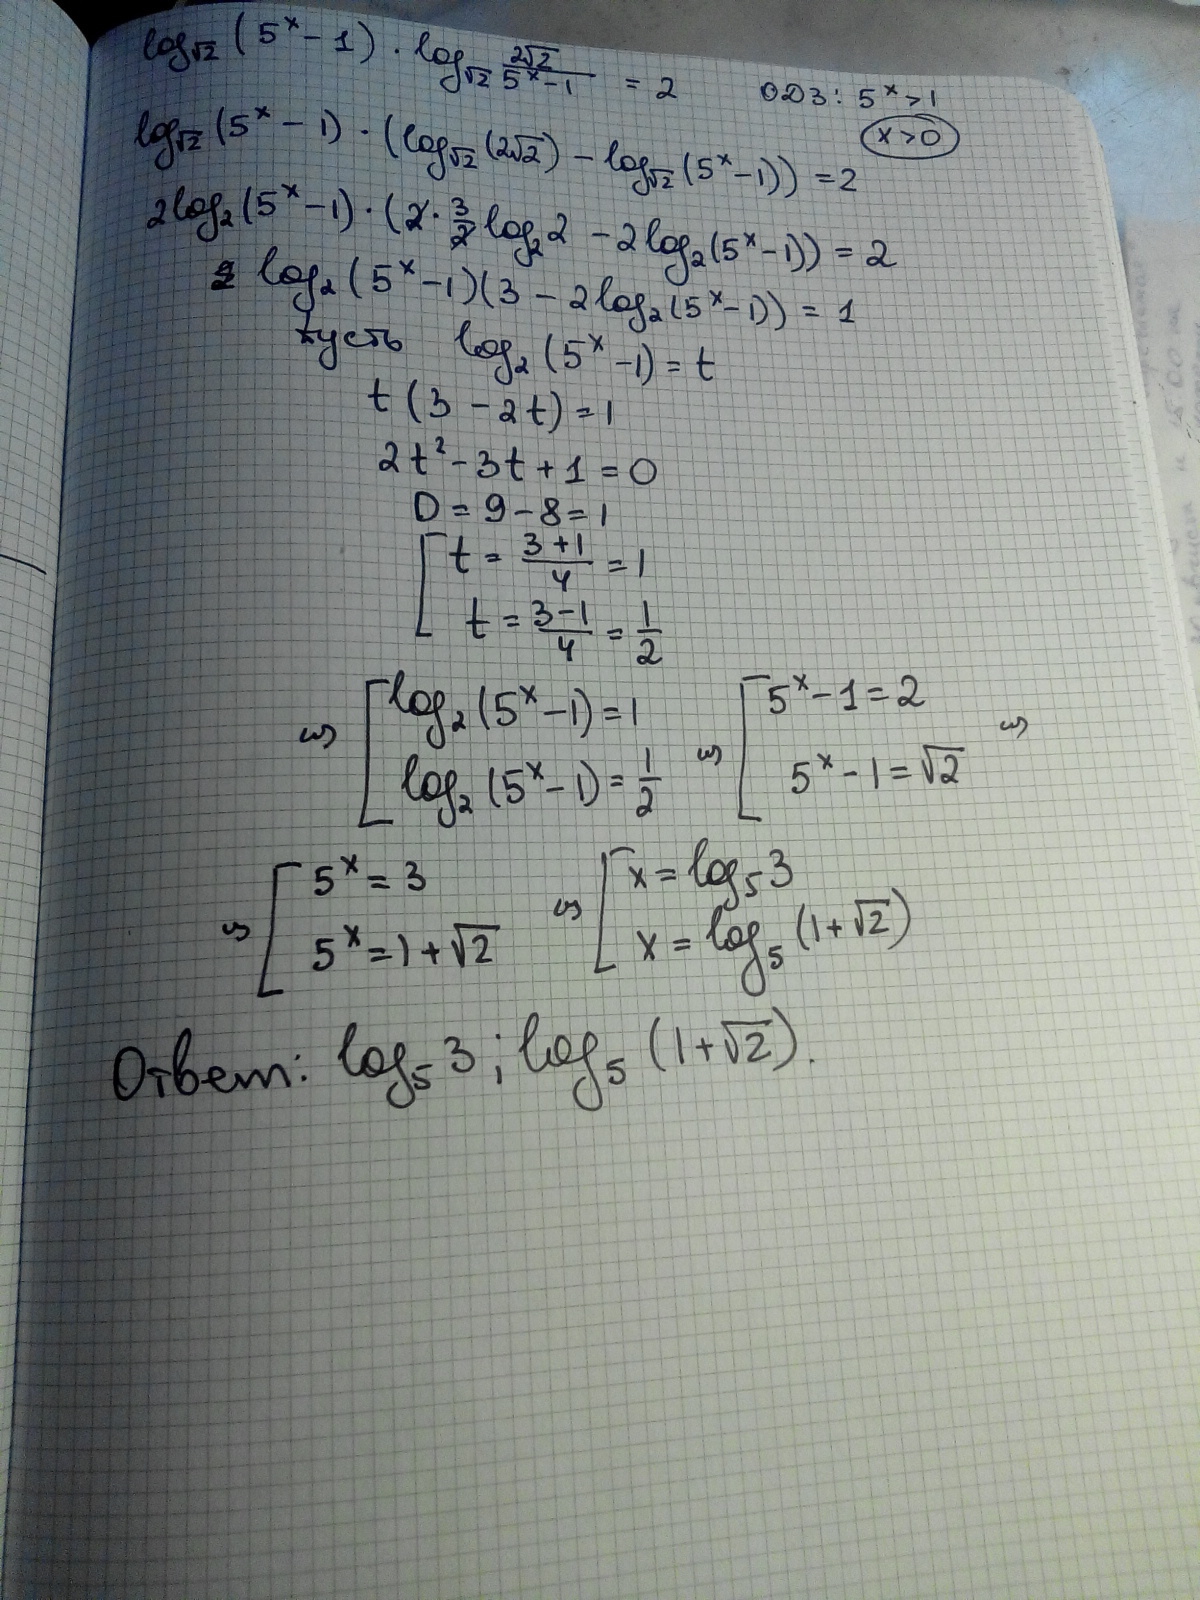 log√2 (5^x − 1) · log√2 2√2/(5^x − 1) = 2 ОДЗ: 5^x > 1
x > 0
log√2 (5^x − 1) · (log√2 (2√2) − log√2 (5^x − 1)) = 2
2log₂(5^x − 1) · (2 · 3/2 log₂2 − 2log₂(5^x − 1)) = 2
log₂(5^x − 1)(3 − 2log₂(5^x − 1)) = 1
пусть log₂(5^x − 1) = t
t(3 − 2t) = 1
2t² − 3t + 1 = 0
D = 9 − 8 = 1
[ t = (3+1)/4 = 1
t = (3−1)/4 = 1/2
⇔ [ log₂(5^x − 1) = 1 ⇔ [ 5^x − 1 = 2 ⇔
log₂(5^x − 1) = 1/2 5^x − 1 = √2
⇔ [ 5^x = 3 ⇔ [ x = log₅3
5^x = 1 + √2 x = log₅(1 + √2)
Ответ: log₅3; log₅(1 + √2).